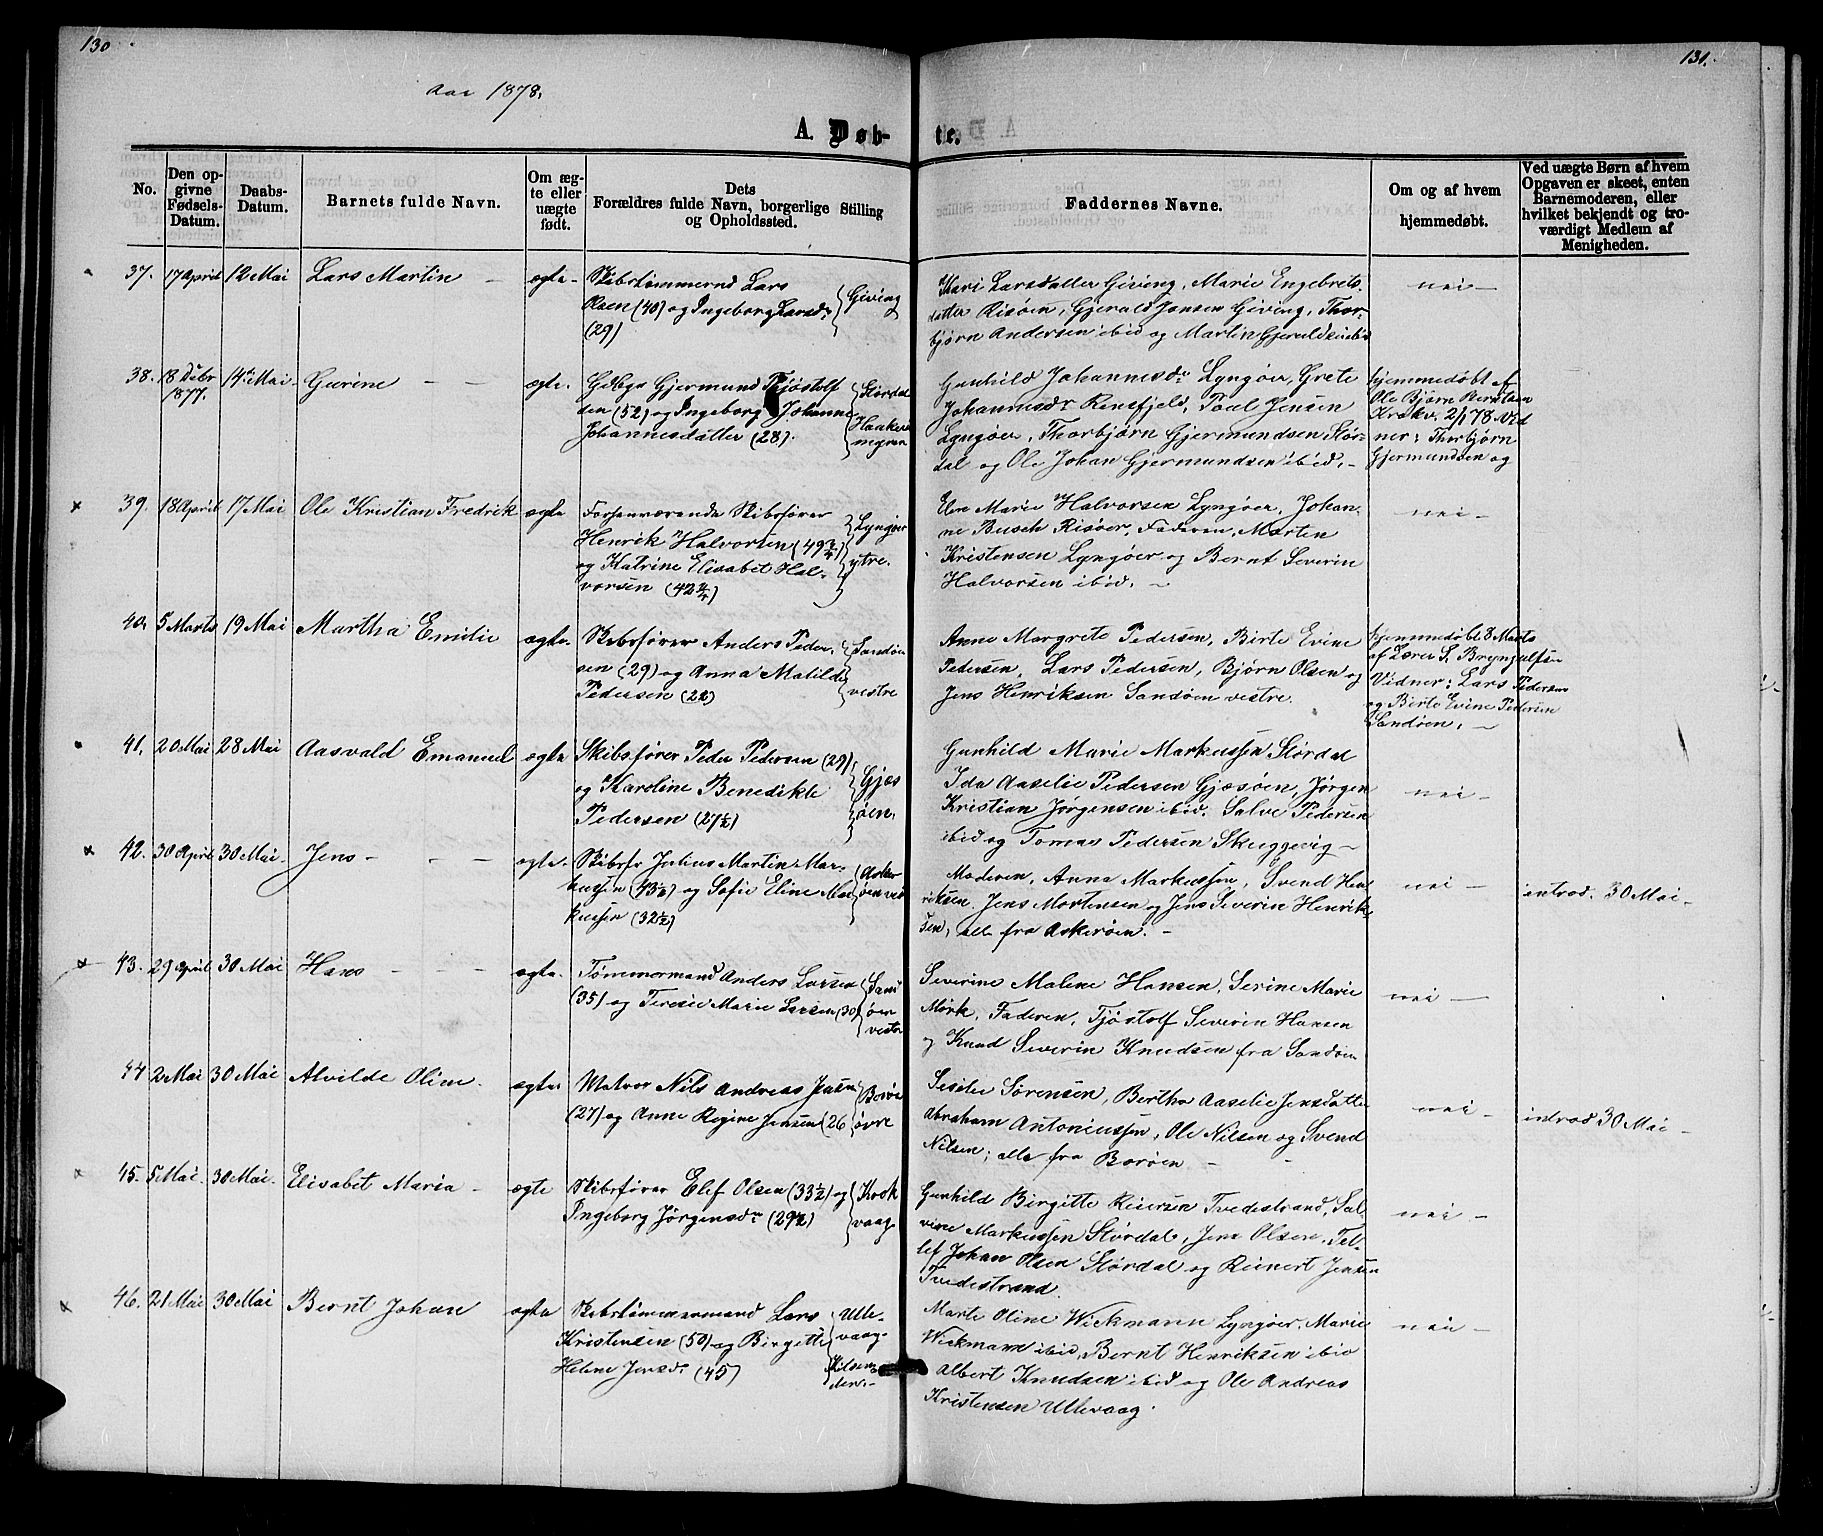 130
131.
Aar 1878.
A. Døb-
te.
No.
Den op-
givne
Fødsels-
Datum.
Daabs-
Datum.
Barnets fulde Navn.
Om æg-
te eller
uægte
født.
Dets
Forældres fulde Navn, borgerlige Stilling
og Opholdssted.
Faddernes Navne.
Om og af hvem
hjemmedøbt.
Ved uægte Børn af hvem
Opgaven er skeet, enten
Barnemoderen, eller
hvilket bekjendt og tro-
værdigt Medlem af
Menigheden.
37. 17 April 12 Mai Lars Martin — ægte-
Skibstømmermd Lars
Olsen (40) og Ingeborg Larsdr
(29)
Giving
Mari Larsdatter Giving, Marie Engebrets-
datter Risøen, Gjerald Jensen Giving, Thor-
bjørn Andersen ibid og Martin Gjeruldsen ibid
nei —
38. 18 Debr
1877. 14de Mai. Gurine — — ægte.
Gdbgr Gjermund Tjøstolf
sen (52) og Ingeborg Johanne
Johannesdatter (28).
Stordal
Haaker
megren
Gunhild Johannesdr Lyngøer, Grete
Johannesdr Rensfjeld, Toal Jensen
Lyngøer, Thorbjørn Gjermundsen Stør-
dal og Ole Johan Gjermundsen ibid. -
hjemmedøbt af
Ole Bjørn Berntsen
Krokv. 2/1 78. Vid
ner: Thorbjørn
Gjermundsen og
x 39. 18 April 17 Mai Ole Kristian Fredrik ægte
Forhenværende Skibsfører
Henrik Halvorsen (49 3/4)
og Katrine Elisabet Hal-
vorsen (42 3/4)
Lyngøer
ytre.
Elen Marie Halvorsen Lyngøer, Johan-
ne Busch Risøer, Faderen, Morten
Kristensen Lyngøer og Bernt Severin
Halvorsen ibid. —
nei —
40. 5 Marts 19 Mai Martha Emilie ægte.
Skibsfører Anders Peder-
sen (29) og Anna Matilde
Pedersen (22)
Sandøen
vestre
Anne Margrete Pedersen, Birte Evine
Pedersen, Lars Pedersen, Bjørn Olsen og
Jens Henriksen Sandøen vestre.
hjemmedøbt 8 Marts
af Lærer S. Brynjulfsen
Vidner: Lars Pedersen
og Birte Evine Pedersen
Sandøen. —
41. 20 Mai 28 Mai Aasvald Emanuel ægte
Skibsfører Peder Pedersen (29)
og Karoline Benedikte
Pedersen (27½)
Gjæs
øen.
Gunhild Marie Markussen Størdal
Ida Aaselie Pedersen Gjæsøen, Jørgen
Kristian Jørgensen ibid. Salve Pedersen
ibid og Tomas Pedersen Skuggevig —
nei —
x 42. 30 April 30 Mai. Jens — — — ægte.
Skibsfr Julius Martin Mar-
kussen (43½) og Sofie Eline Mar
kussen (32½)
Asker
øen vest
Moderen, Anna Markussen, Svend Hen-
riksen. Jens Mortensen og Jens Severin Henrik-
sen, alle fra Askerøen. —
nei —
introd. 30 Mai —
x 43. 29 April 30 Mai Hans — — — ægte.
Tømmermand Anders Larsen
(35) og Teresie Marie Larsen (30)
Sand
øen
vestre
Severine Malene Hansen, Serine Marie
Mørk, Faderen, Tjøstolf Severin Hansen
og Knud Severin Knudsen fra Sandøen
nei —
44 2 Mai 30 Mai Alvilde Oline. ægte
Matros Nils Andreas Jensen
(27) og Anne Regine Jensen (26
Borøe
øvre
Sesilie Sørensen, Berthe Aaselie Jensdatter
Abraham Antoniussen, Ole Nilsen og Svend
Nilsen; alle fra Borøen —
nei —
introd 30 Mai —
x 45. 5 Mai. 30 Mai. Elisabet Maria — ægte
Skibsfører Elef Olsen (33½) og
Ingeborg Jørgensdr (29½)
Krok
vaag
Gunhild Birgitte Reiersen Tvedestrand, Sal-
vine Markussen Størdal, Jens Olsen, Tel-
lef Johan Olsen Størdal og Reinert Jensen
Tvedestrand.
nei —
x 46. 21 Mai 30 Mai Bernt Johan ægte
Skibstømmermand Lars
Kristensen (50) og Birgitte
Helene Jensdr (45)
Ulle-
vaag-
Kilsun-
det.
Marte Oline Wickmann Lyngøer, Marie
Wickmann ibid, Bernt Henriksen ibid
Albert Knudsen ibid og Ole Andreas
Kristensen Ullevaag.
nei —